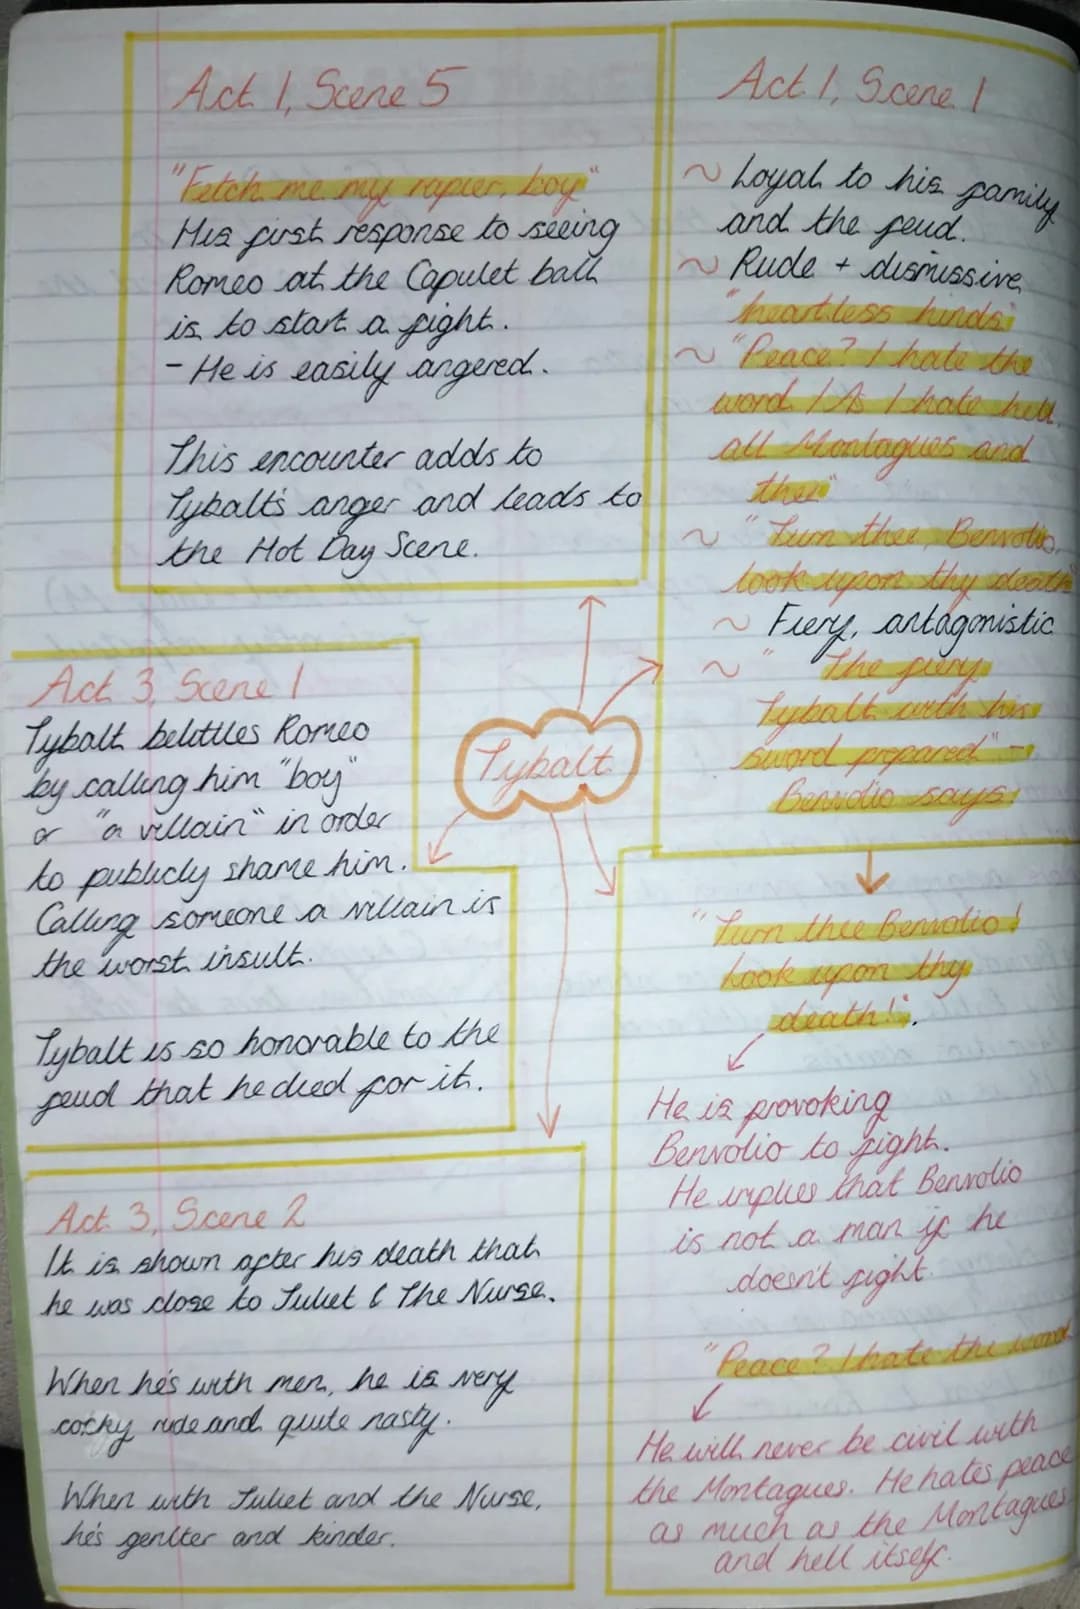 Act 1, Scene 5
"Fetch me my rapier, boy"
His first response to seeing
Romeo at the Capulet ball
is to start a fight.
- He is easily angered.
This encounter adds to
Tybalt's anger and leads to
the Hot Day Scene.
Act 1, Scene 1
~ Loyal to his family
and the feud.
~ Rude + dismissive
"heartless hinds"
~ "Peace? I hate the
word / As I hate hell,
all Montagues and
thee"
~ "Turn thee, Benvolio,
look upon thy death"
~ Fiery, antagonistic
~ " The fiery
Tybalt with his
sword prepared" -
Benvolio says!
Tybalt
Act 3, Scene 1
Tybalt belittles Romeo
by calling him "boy"
or "a villain" in order
to publicly shame him.
Calling someone a villain is
the worst insult.
Tybalt is so honorable to the
feud that he died for it.
Act 3, Scene 2
It is shown after his death that
he was close to Juliet & The Nurse.
When he's with men, he is very
cocky rude and quite nasty.
When with Juliet and the Nurse,
he's genlter and kinder.
"Turn thee Benvolio!
Look upon thy
death!".
He is provoking
Benvolio to fight.
He implies that Benvolio
is not a man if he
doesn't fight.
"Peace? I hate the word
He will never be civil with
the Montagues. He hates peace
as much as the Montagues
and hell itself.